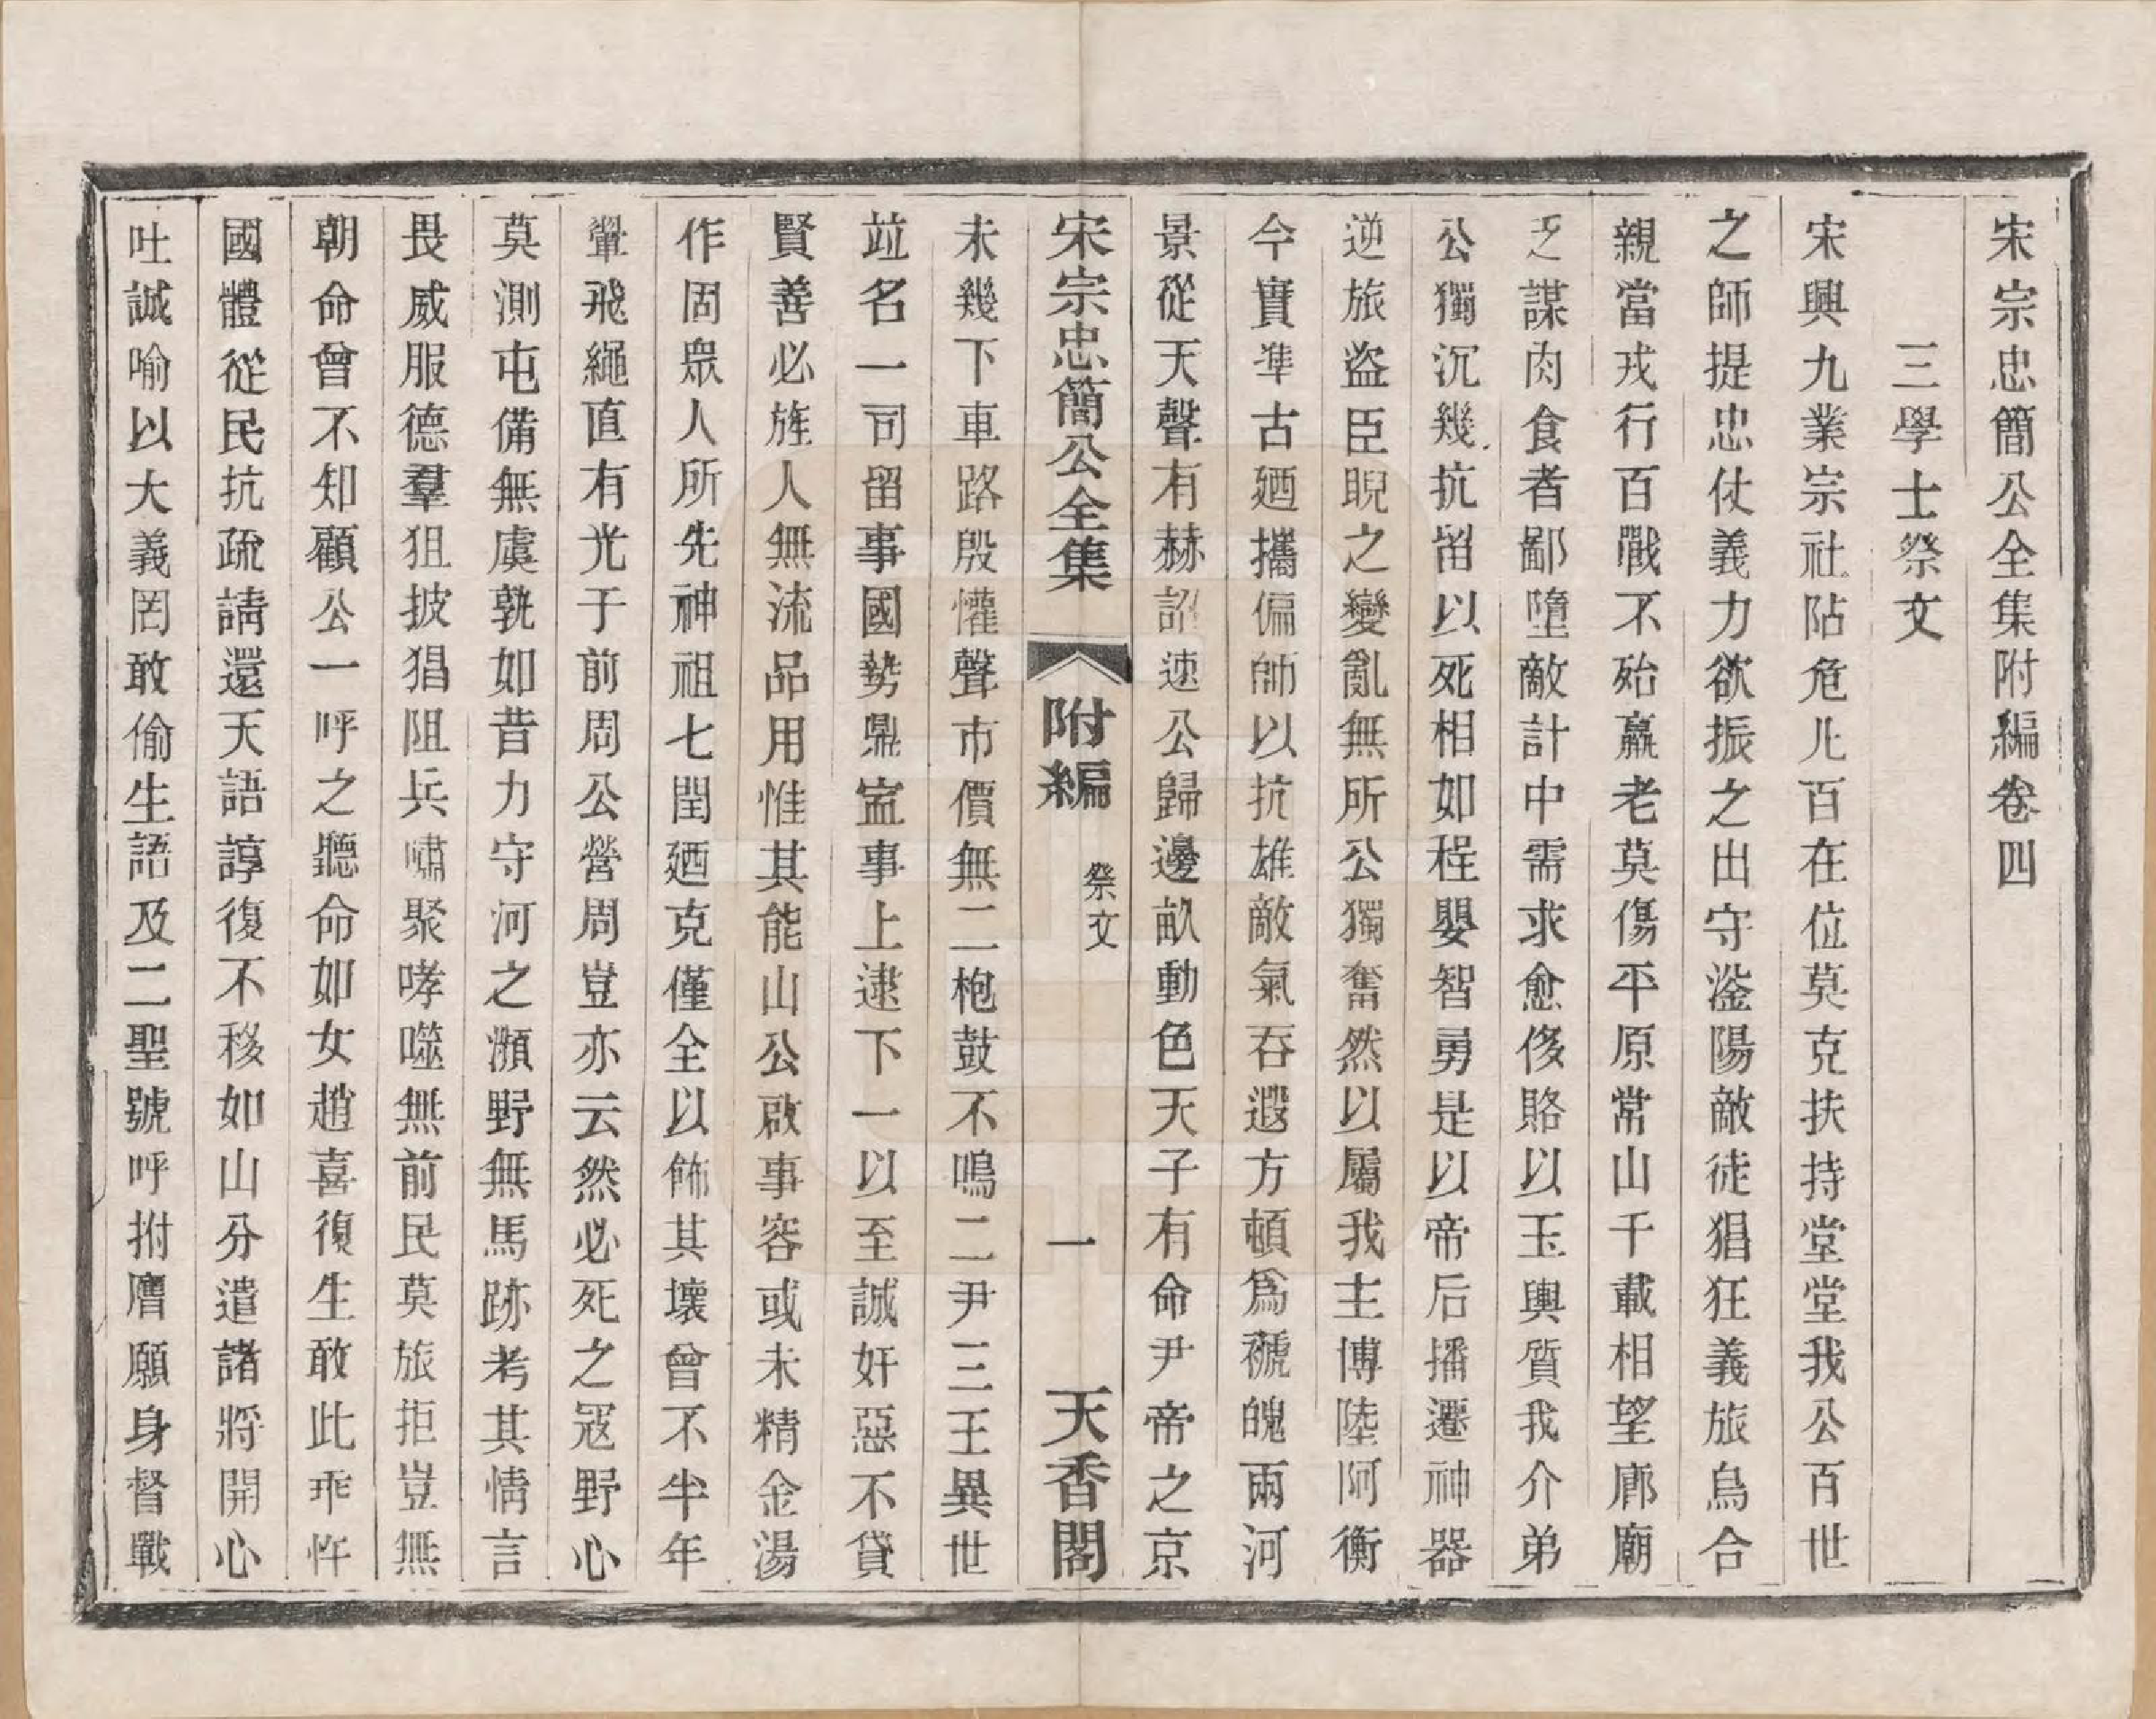 宋宗忠簡公全集附編卷四
三學士祭文
宋興九業宗社阽危凡百在位莫克扶持堂堂我公百世
之師提忠仗義力欲振之出守滏陽敵徒猖狂義旅烏合
親當戎行百戰不殆羸老莫傷平原常山千載相望廊廟
乏謀肉食者鄙墮敵計中需求愈侈賂以玉輿質我介弟
公獨沉幾抗留以死相如程嬰智勇是以帝后播遷神器
逆旅盜臣睨之變亂無所公獨奮然以屬我主博陸阿衡
今實準古廼攜偏師以抗雄敵氣吞遐方頓爲褫魄兩河
景從天聲有赫詔速公歸邊畝動色天子有命尹帝之京
宋宗忠簡公全集
附編
祭文
一
天香閣
未幾下車路殷懽聲市價無二枹鼓不鳴二尹三王異世
竝名一司留事國勢鼎寍事上逮下一以至誠奸惡不貸
賢善必旌人無流品用惟其能山公啟事容或未精金湯
作固眾人所先神祖七閏廼克僅全以飾其壞曾不半年
翬飛繩直有光于前周公營周豈亦云然必死之寇野心
莫測屯備無虞孰如昔力守河之瀕野無馬跡考其情言
畏威服德羣狙披猖阻兵嘯聚哮噬無前民莫旅拒豈無
朝命曾不知顧公一呼之聽命如女趙喜復生敢此乖忤
國體從民抗疏請還天語諄復不移如山分遣諸將開心
吐誠喻以大義罔敢偷生語及二聖號呼拊膺願身督戰